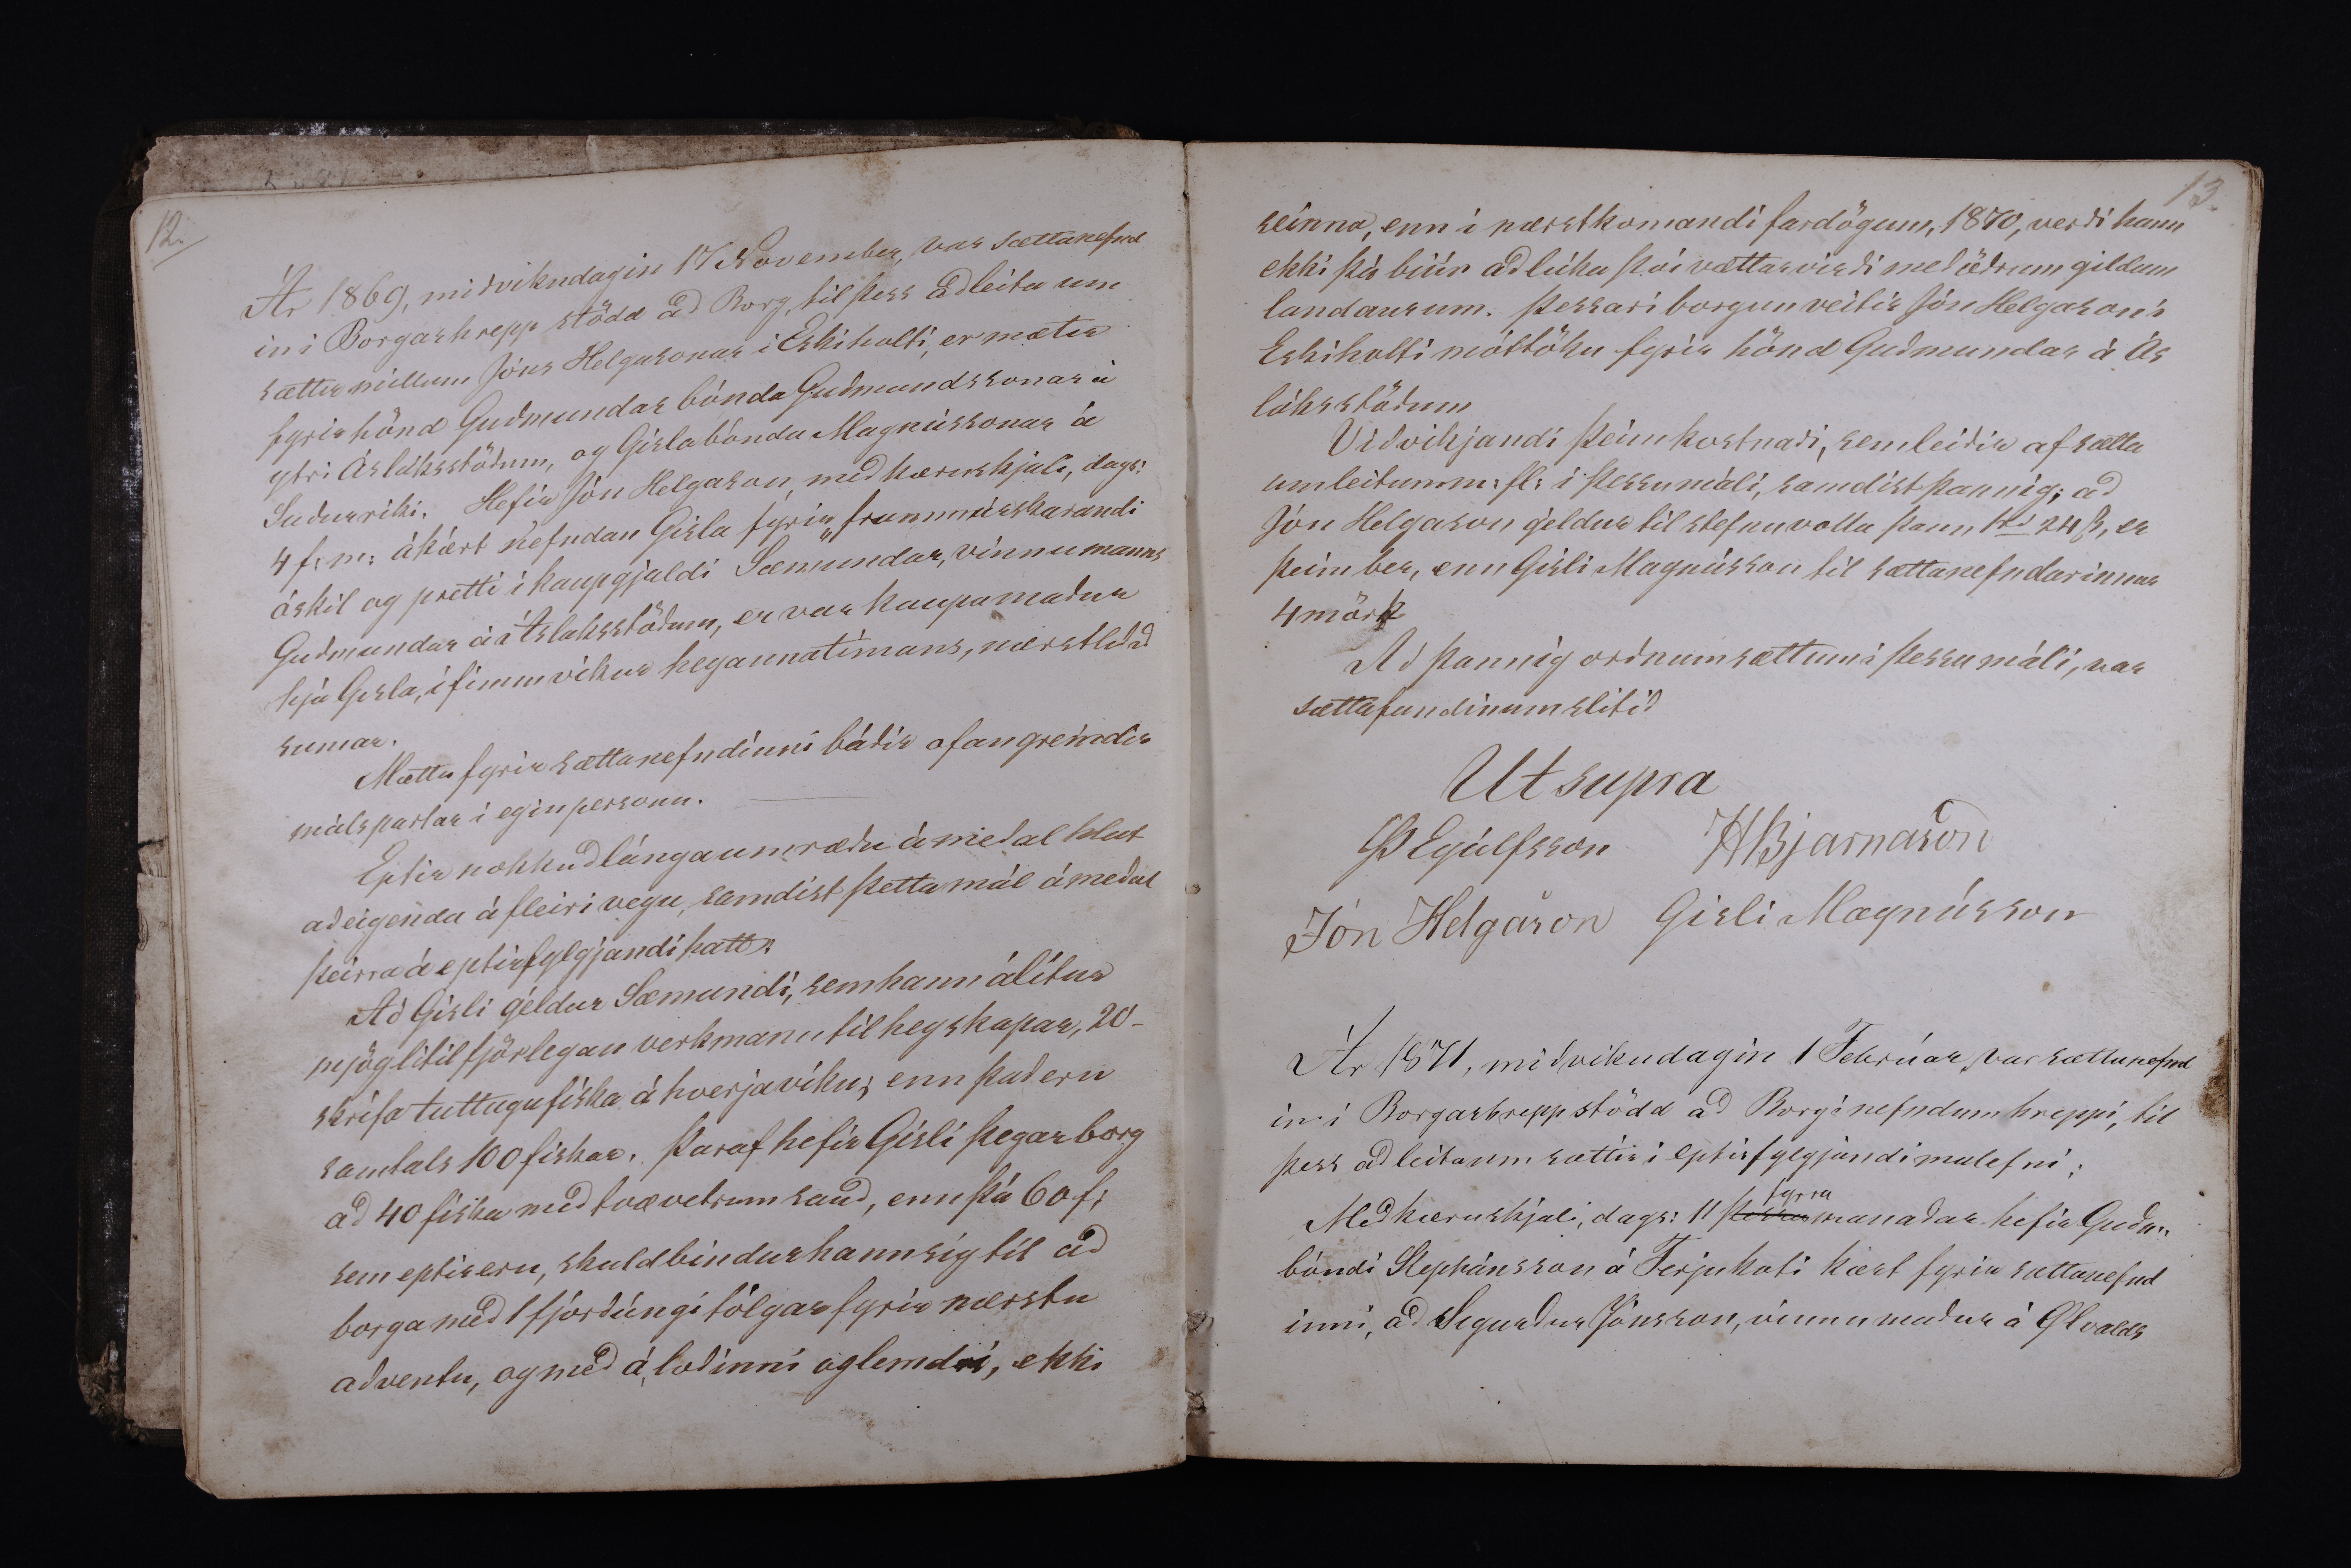 12.
Ár 1869, miðvikudagin 17 November, var sættanefnd
in i Borgarhrepp stödd að Borg, til þess að leita um
sættir millum Jóns Helgasonar i Eskiholti, er mætir
fyrir hönd Guðmundar bónda Guðmundssonar á
ytri Ásláksstöðum, og Gisla bónda Magnússonar á
Suðurriki. Hefir Jón Helgason, með kæruskjali, dags:
4 f: m: ákært nefndan Gisla fyrir framúrskarandi
óskil og pretti i kaupgjaldi Sæmundar, vinnumanns
Guðmundar á Áslaksstöðum, er var kaupamaður
hjá Gisla, i fimm vikur heyannatímans, næstliðið
sumar.
Mættu fyrir sættanefndinni báðir ofangreindir
málspartar i eginpersonu.
Eptir nokkuð lánga umræðu á meðal hlut
aðeigenda á fleiri vegu, samdist þetta mál ámeðal
þeirra á eptirfylgjandi hatt:
Að Gisli geldur Sæmundi, sem hann álítur
mjög litilfjörlegan verkmann til heyskapar, 20-
skrifa tuttugu fiska á hverja viku; enn það eru
samtals 100 fiskar. Þaraf hefir Gisli þegar borg
að 40 fiska með tvævetrum sauð, enn þá 60 f:
sem eptir eru, skuldbindur hann sig til að
borga með 1 fjórðúngi tólgar fyrir næstu
adventu, og með á, loðinni og lemdri, ekki
13.
seinna, enn i næstkomandi fardögum, 1870, verði hann
ekki þá búin að lúka þvi vættarvirði með öðrum gildum
landaurum. Þessari borgun veitir Jón Helgason i
Eskiholti móttöku fyrir hönd Guðmundar á Ás
láksstöðum
Viðvikjandi þeim kostnaði, sem leiðir af sætta
umleitum m: fl: i þessu máli, samdist þannig; að
Jón Helgason geldur til stefnuvotta þann 1 rd 24 ß, er
þeim ber, enn Gisli Magnússon til sættanefndarinnar
4 mörk
Að þannig orðnum sættum i þessu máli, var
sættafundinum slitið
Ut supra
Þ Eyúlfsson HBjarnason
Jón Helgason Gisli Magnússon
Ár 1871, miðvikudagin 1 Febrúar, var sættanefnd
in i Borgarhrepp stödd að Borg i nefndum hreppi, til
þess að leita um sættir i eptirfylgjandi malefni;
fyrra
Með kæruskjali, dags: 11 þessa manaðar hefir Guðm.
bóndi Stephánsson á Ferjukoti kært fyrir sættanefnd
inni, að Sigurður Jónsson, vinnumaður á Ölvalds